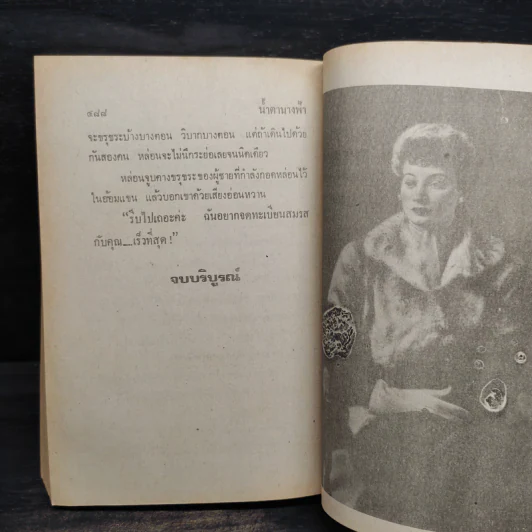 ๙๘๘
น้ำตานางฟ้า
จะขรุขระบ้างบางตอน วิบากบางตอน แต่ถ้าเดินไปด้วย
กันสองคน หล่อนจะไม่นึกระย่อเลยจนนิดเดียว
หล่อนจูบคางขรุขระของผู้ชายที่กำลังกอดหล่อนไว้
ในอ้อมแขน แล้วบอกเขาด้วยเสียงอ่อนหวาน
“รีบไปเถอะค่ะ ฉันอยากจดทะเบียนสมรส
กับคุณ__เร็วที่สุด!”
จบบริบูรณ์